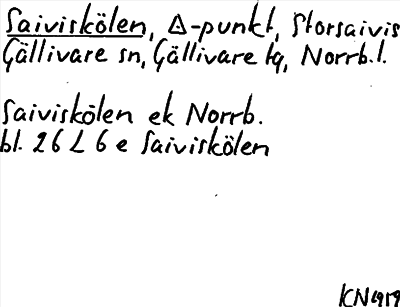 Saiviskölen, Δ-punkt, Storsaivis
Gällivare sn, Gällivare tg, Norrb.l.
Saiviskölen ek Norrb.
bl. 26 L 6 e Saiviskölen